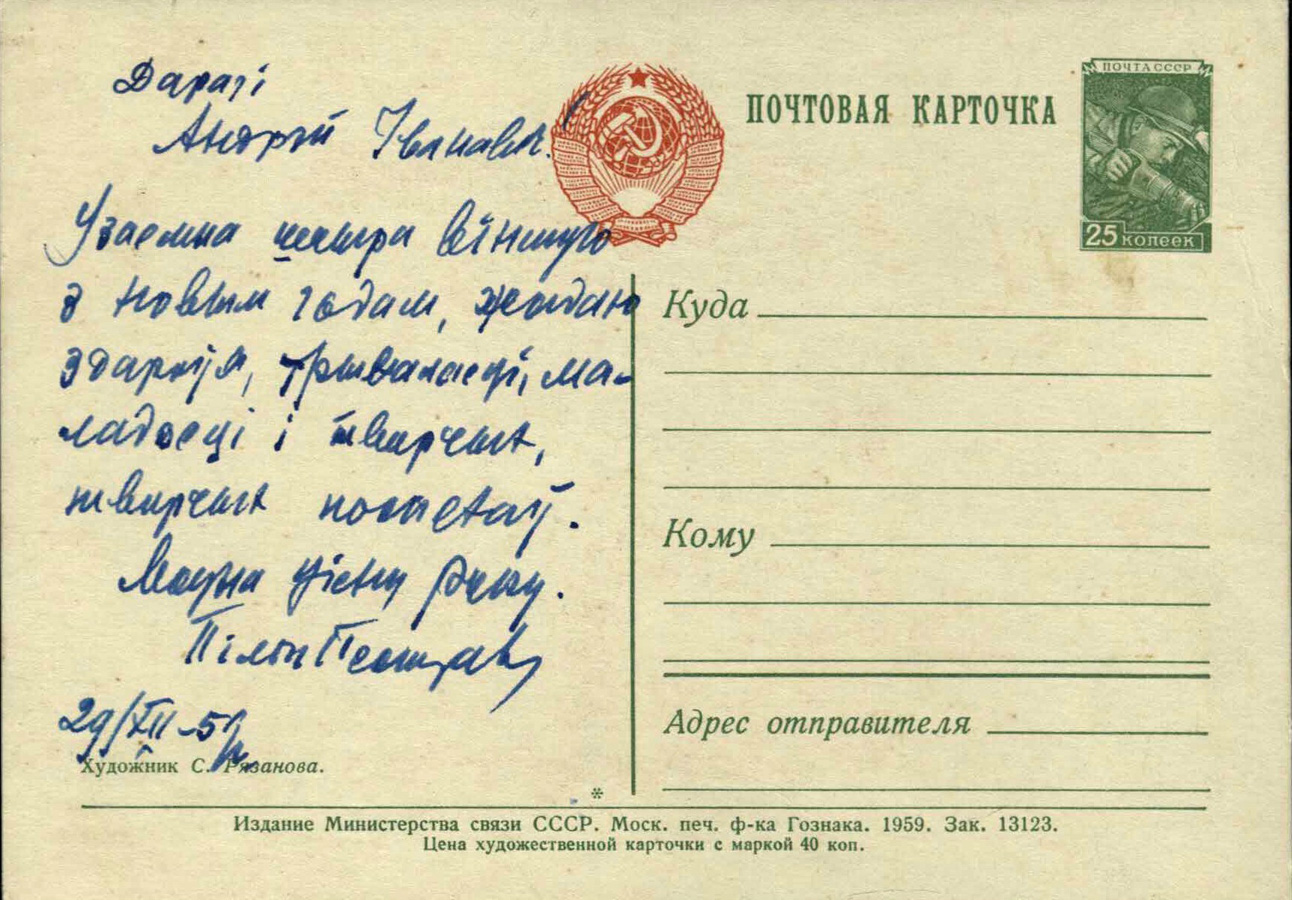 Дарагі
Андрэй Іванавіч!
Узаемна шчыра віншую
з Новым годам, жадаю
здароўя, трываласці, ма-
ладосці і творчых,
творчых поспехаў.
Моцна цісну руку.
Пілып Пестрак
29/XII-59
ПОЧТОВАЯ КАРТОЧКА
ПОЧТА СССР
25 копеек
Куда
Кому
Адрес отправителя
Художник С. Рязанова.
*
Издание Министерства связи СССР. Моск. печ. ф-ка Гознака. 1959. Зак. 13123.
Цена художественной карточки с маркой 40 коп.